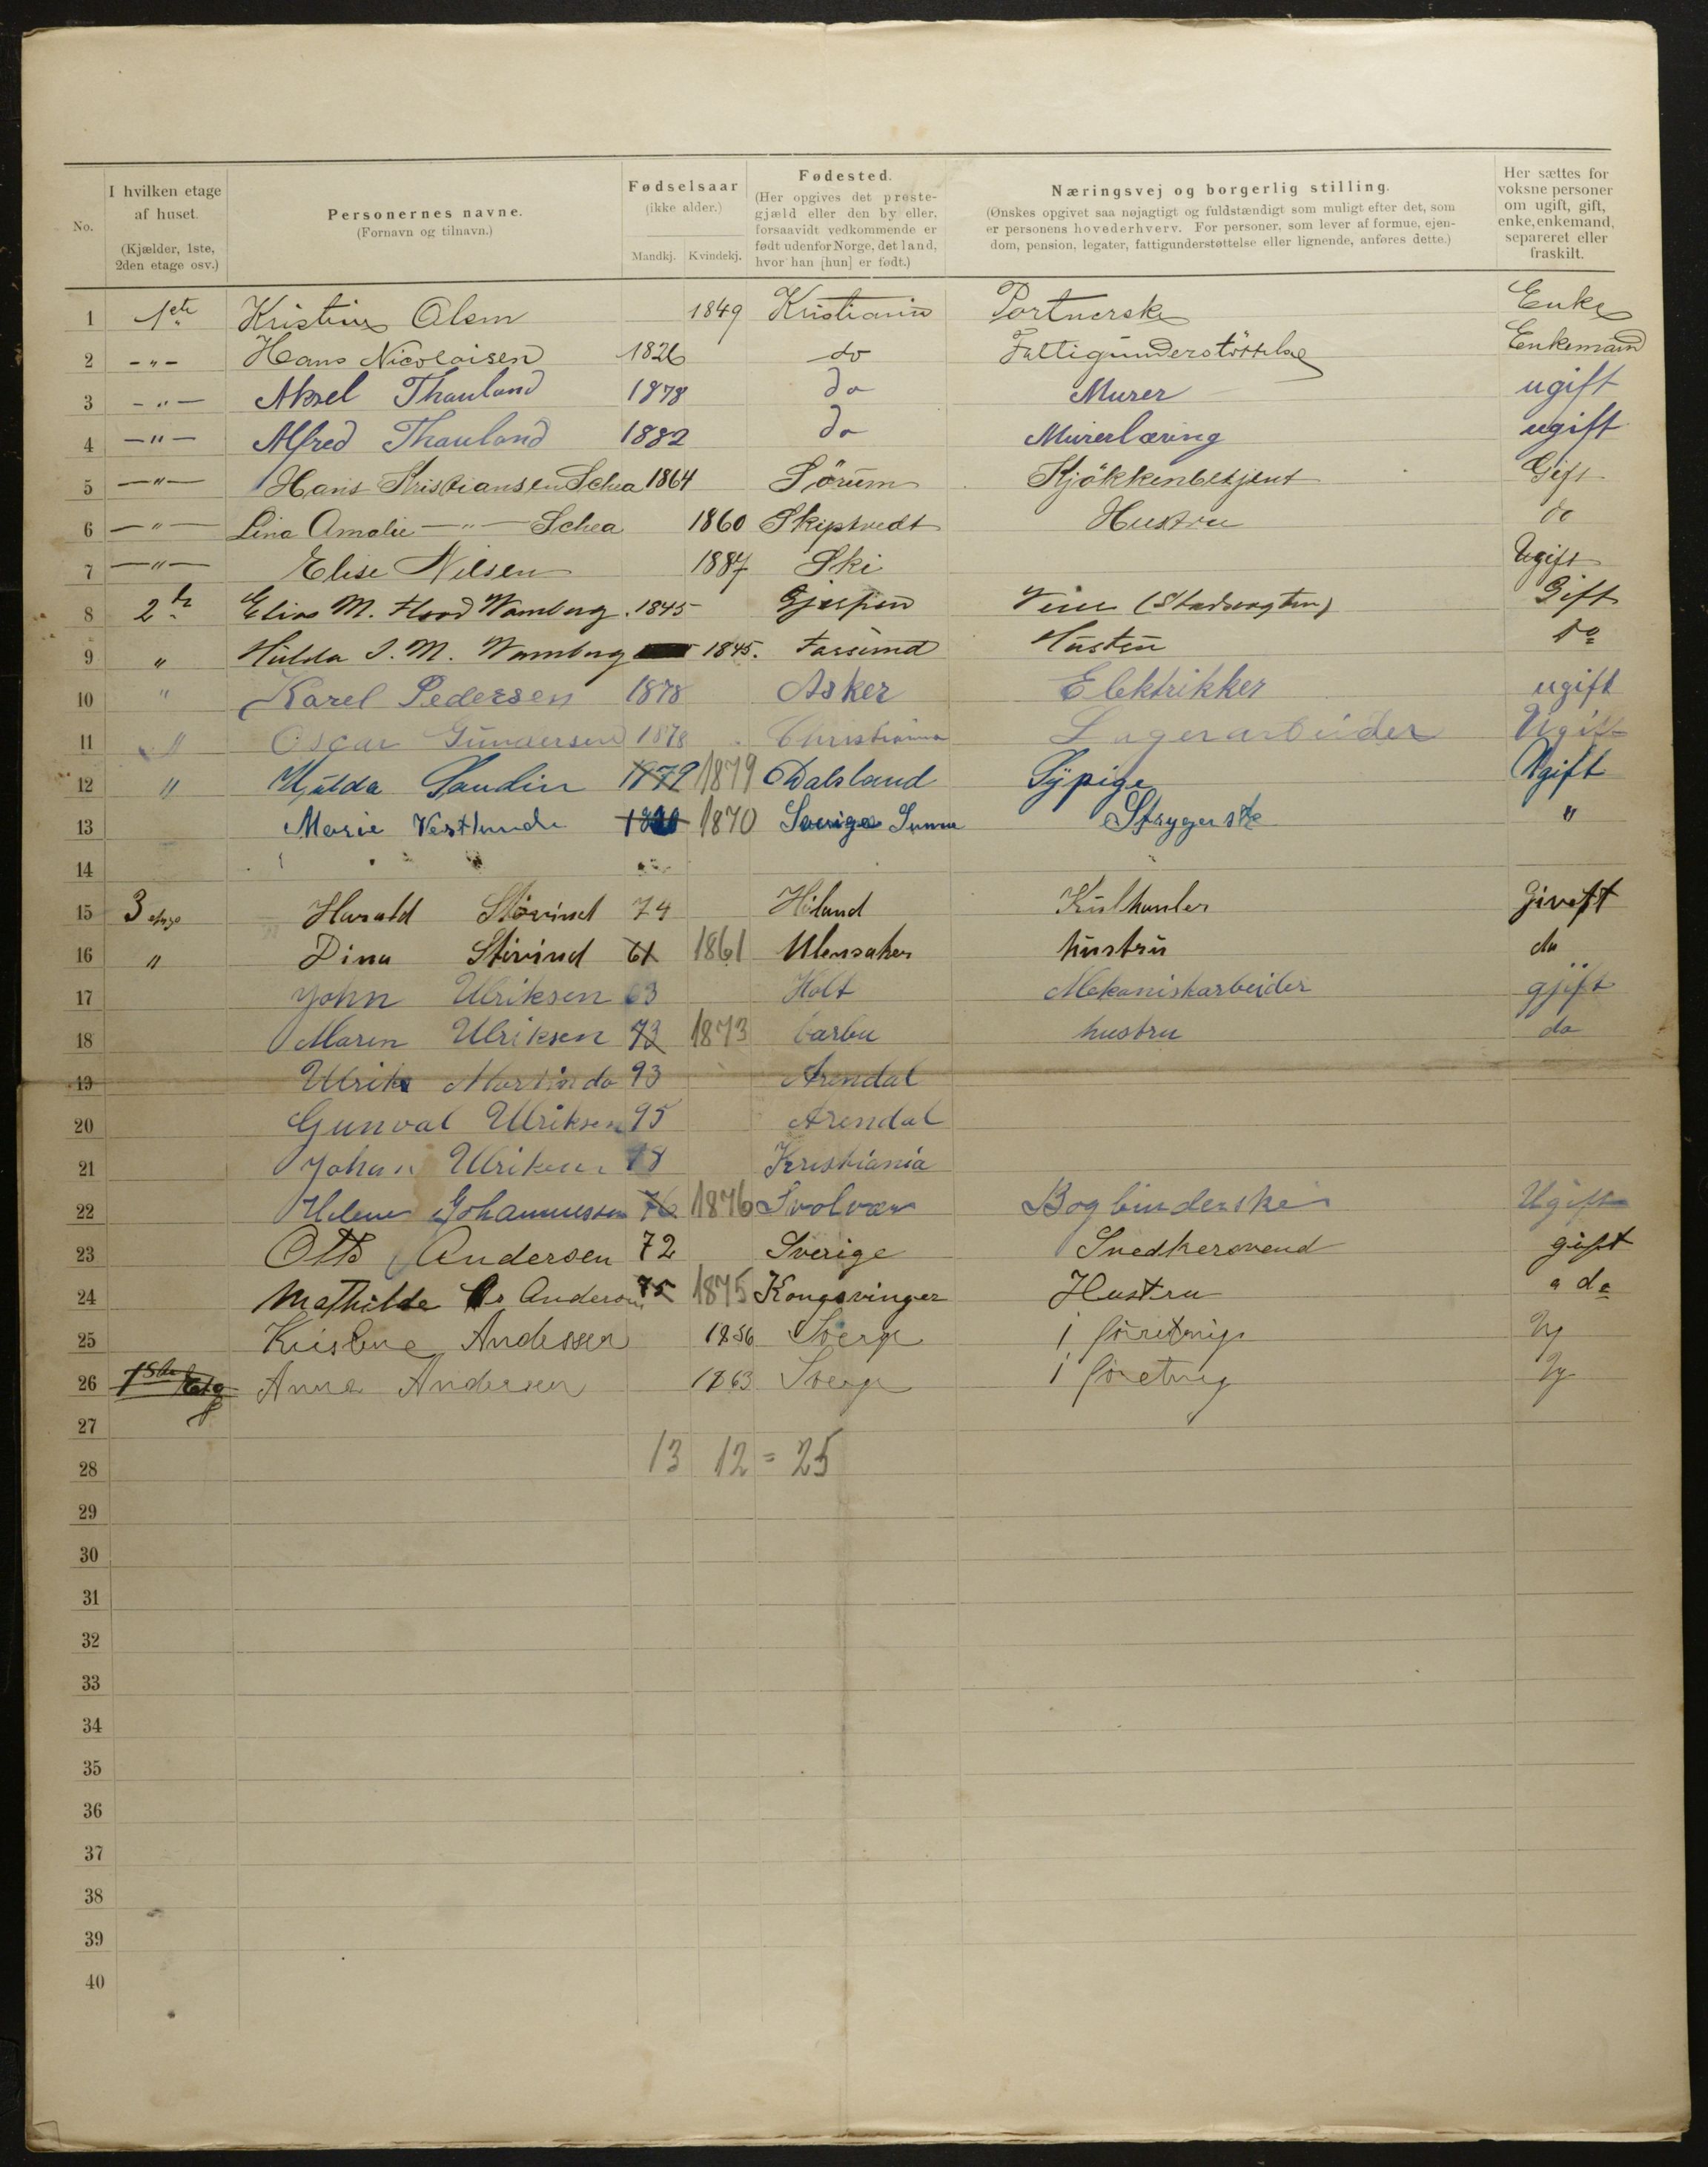 No.
I hvilken etage af huset. (Kjælder, 1ste, 2den etage osv.)
Personernes navne. (Fornavn og tilnavn.)
Fødselsaar (ikke alder.) Mandkj. Kvindekj.
Fødested. (Her opgives det prestegjæld eller den by eller, forsaavidt vedkommende er født udenfor Norge, det land, hvor han [hun] er født.)
Næringsvej og borgerlig stilling. (Ønskes opgivet saa nøjagtigt og fuldstændigt som muligt efter det, som er personens hovederhverv. For personer, som lever af formue, ejendom, pension, legater, fattigunderstøttelse eller lignende, anføres dette.)
Her sættes for voksne personer om ugift, gift, enke, enkemand, separeret eller fraskilt.
1 1ste Kristine Olsen 1849 Kristiania Portnerske Enke
2 -"- Hans Nicolaisen 1826 do Fattigunderstöttelse Enkemand
3 -"- Aksel Thauland 1878 do Murer ugift
4 -"- Alfred Thauland 1882 do Murerlæring ugift
5 -"- Hans Kristiansen Schea 1864 Sörum Kjökkenbetjent Gift
6 -"- Lina Amalie -"- Schea 1860 Skiptvedt Hustru do
7 -"- Elise Nilsen 1887 Ski Ugift
8 2 Elias M. Flood Wamberg 1845 Gjerpen (Stadsvagten) Gift
9 " Hulda J. M. Wamberg 1845. Farsund Hustru do
10 " Karel Pedersen 1878 Asker Elektrikker ugift
11 " Oscar Gundersen 1878 Christiania Lagerarbeider Ugift
12 " Hulda Sandin 1879 1879 Dalsland Sypige Ugift
13 Marie Vestlunde 1870 Sverige Sunne Strygerske "
14
15 3 etage Harald Störind 74 Höland Kulhanler giveft
16 " Dina Störind 61 1861 Ulensaker hustru do
17 John Ulriksen 63 Holt Mekaniskarbeider gjift
18 Maren Ulriksen 73 1873 barbu hustru do
19 Ulrik Martin do 93 Arendal
20 Gunval Ulriksen 95 Arendal
21 Johan Ulriksen 98 Kristiania
22 Helene Johannessen 76 1876 Svolvær Bogbinderske Ugift
23 Otto Andersen 72 Sverige Snedkersvend gift
24 Mathilde Andersen 75 1875 Kongsvinger Hustru " do
25 Kristine Andersen 1856 Sverge i foretning Ug
26 1ste Etg Anna Andersen 1863 Sverge i foretning Ug
27
28 13 12 = 25
29
30
31
32
33
34
35
36
37
38
39
40